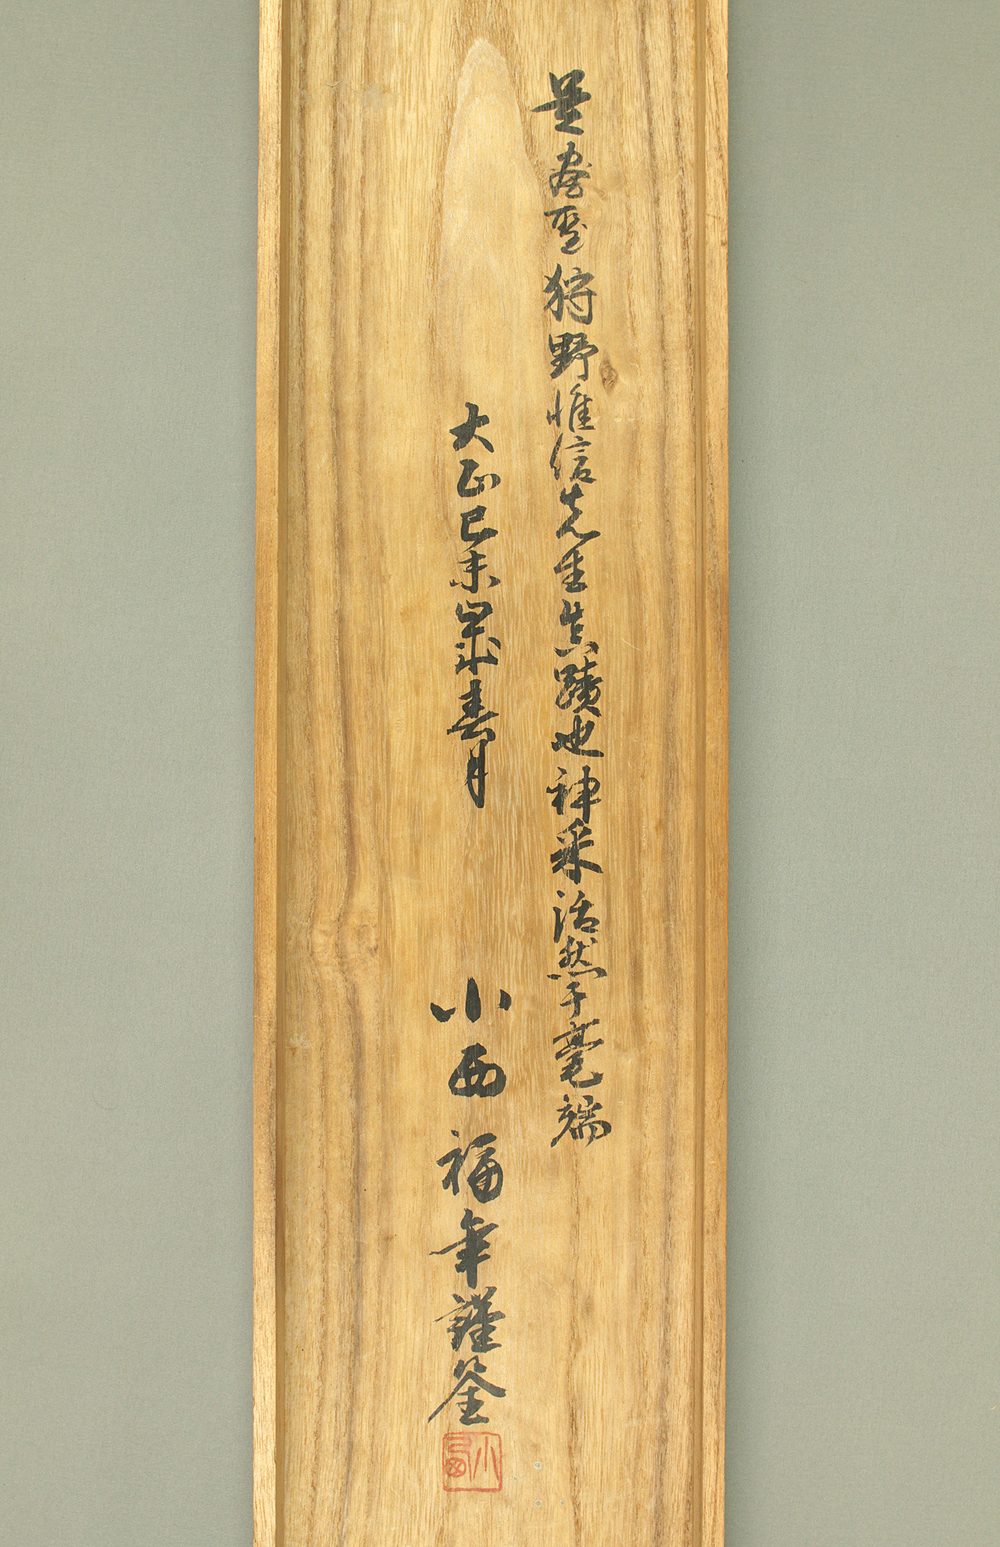 是画聖狩野惟信先生真蹟也神采活然于毫端
大正己未歳春月
小西福年謹筌